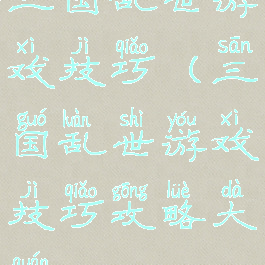 三国乱世游
xì jì qiǎo sān
戏技巧（三
guó luàn shì yóu xì
国乱世游戏
jì qiǎo gōng lüè dà
技巧攻略大
quán